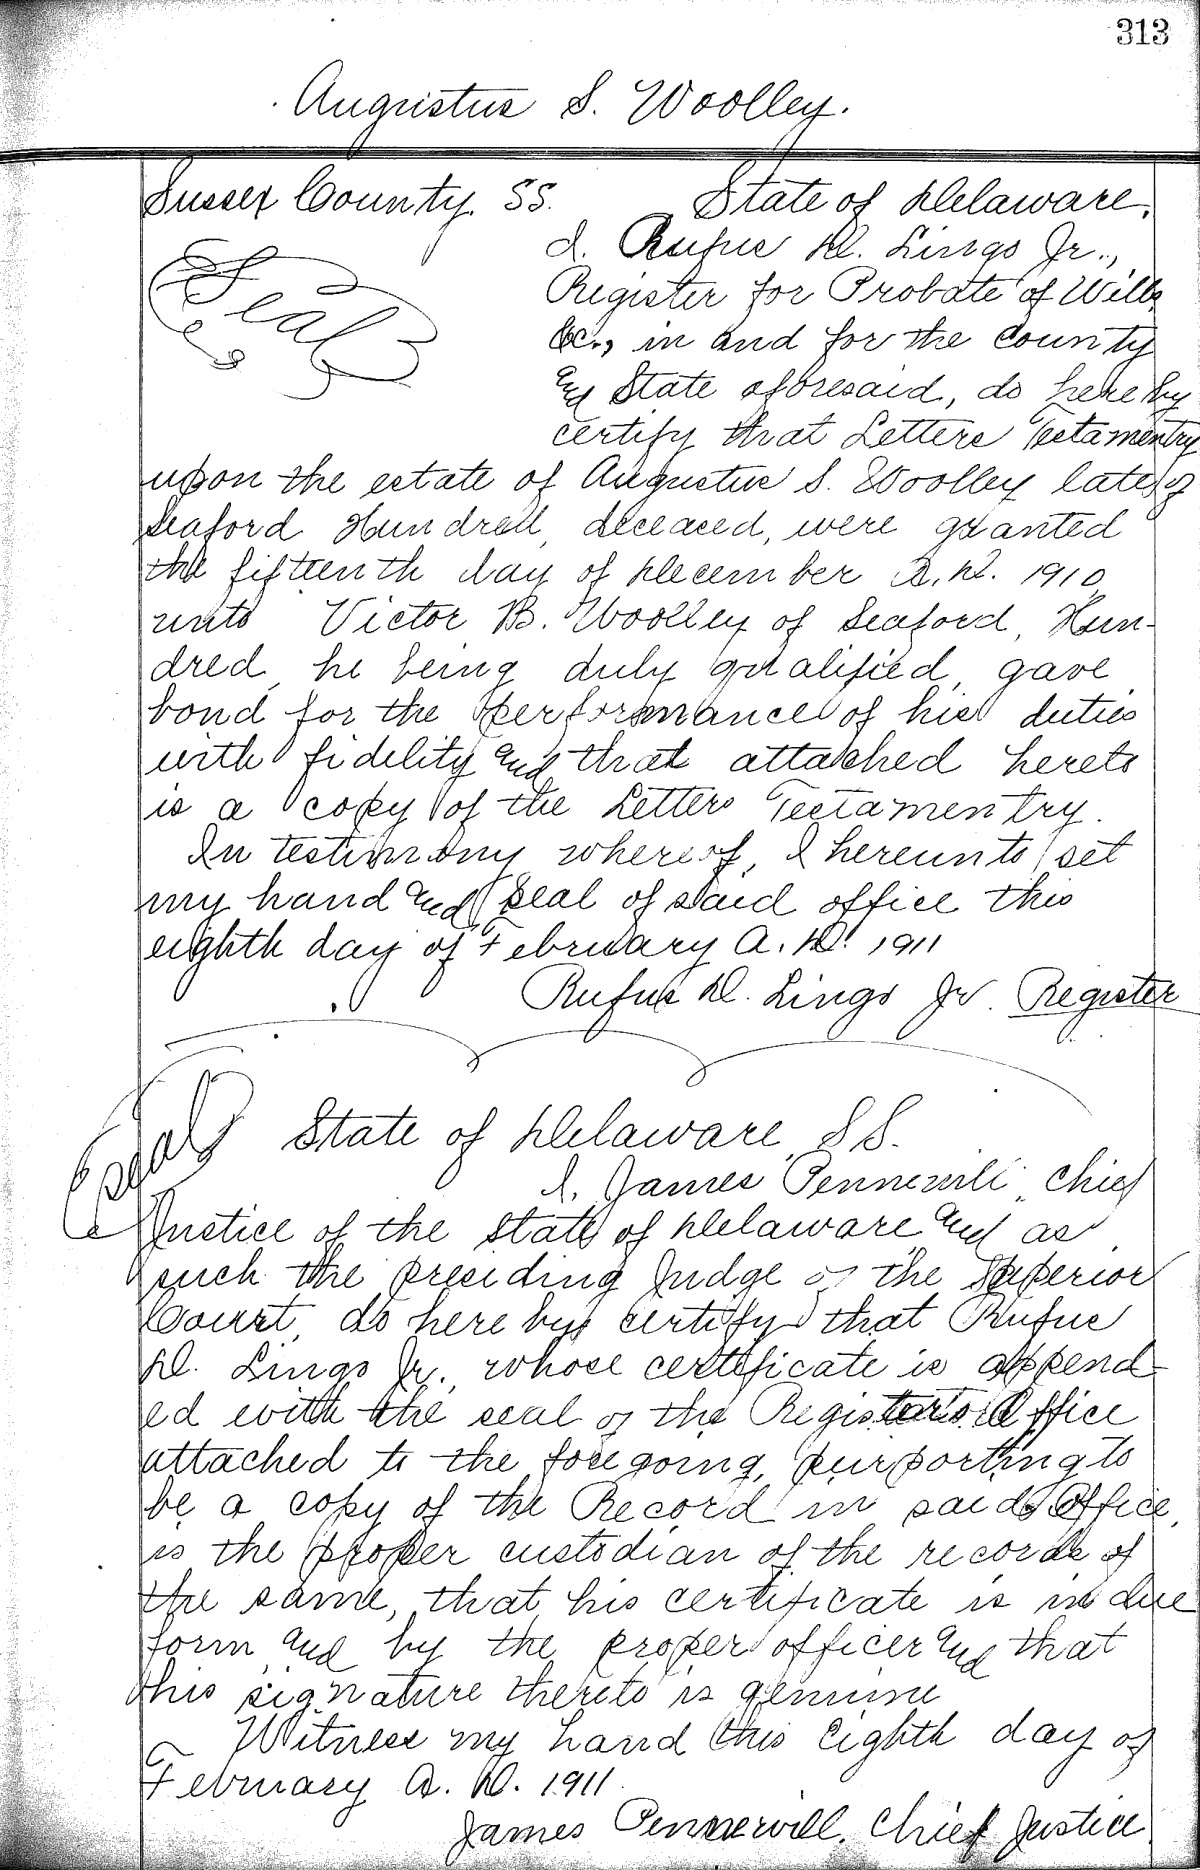 313
Augustus S. Woolley.
Sussex County. SS. State of Delaware.
Seal
I. Rufus D. Lingo Jr.,
Register for Probate of Wills
&c., in and for the County
and State aforesaid, do hereby
certify that Letters Testamentry
upon the estate of Augustus S. Woolley late of
Seaford Hundred, deceased, were granted
the fifteenth day of December A.D. 1910
unto Victor B. Woolley of Seaford, Hun-
dred, he being duly qualified, gave
bond for the performance of his duties
with fidelity and that attached hereto
is a copy of the Letters Testamentry.
In testimony whereof, I hereunto set
my hand and seal of said office this
eighth day of February A.D. 1911
Rufus D. Lingo Jr. Register
Seal
State of Delaware, SS.
I, James Pennewill, Chief
Justice of the State of Delaware and as
such the presiding Judge of the Superior
Court, do hereby certify that Rufus
D. Lingo Jr., whose certificate is append-
ed with the seal of the Registers Office
attached to the foregoing, purporting to
be a copy of the Record in said Office,
is the proper custodian of the records of
the same, that his certificate is in due
form and by the proper officer and that
this signature thereto is genuine
Witness my hand this eighth day of
February A.D. 1911.
James Pennewill. Chief Justice